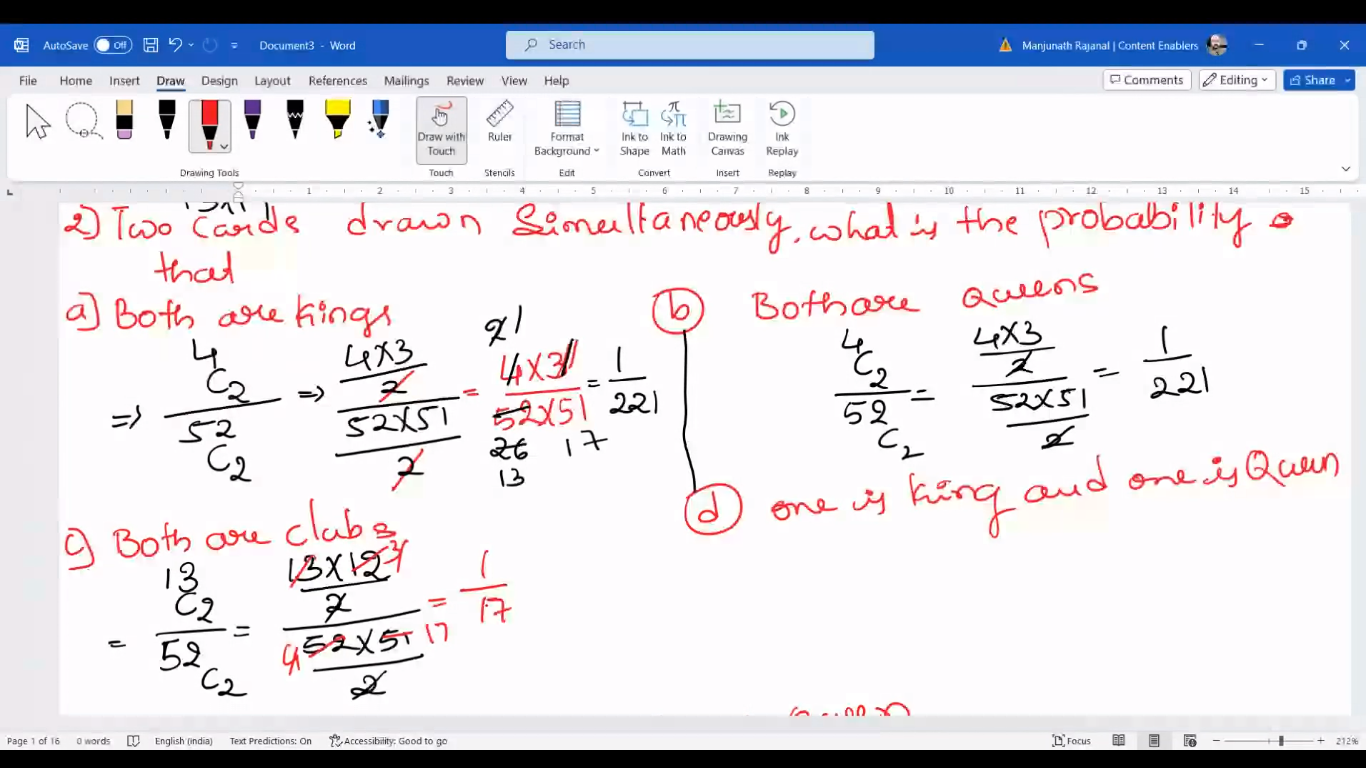 AutoSave Off Document3 - Word Search Manjunath Rajanal | Content Enablers
File Home Insert Draw Design Layout References Mailings Review View Help Comments Editing Share
Draw with Touch Ruler Format Background Ink to Shape Ink to Math Drawing Canvas Insert Ink Replay
Drawing Tools Touch Stencils Edit Convert Insert Replay
1 2 3 4 5 6 7 8 9 10 11 12 13 14 15
2) Two cards drawn Simultaneously, what is the probability
that
a) Both are kings
4C2 / 52C2 => (4x3/2) / (52x51/2) = 4x3 / 52x51 = 1/221
2 1
26 17
13
b Both are Queens
4C2 / 52C2 = (4x3/2) / (52x51/2) = 1/221
c) Both are clubs
= 13C2 / 52C2 = (13x12/2) / (52x51/2) = 1/17
3
4 17
d one is king and one is Queen
Page 1 of 16 0 words English (India) Text Predictions: On Accessibility: Good to go Focus 212%